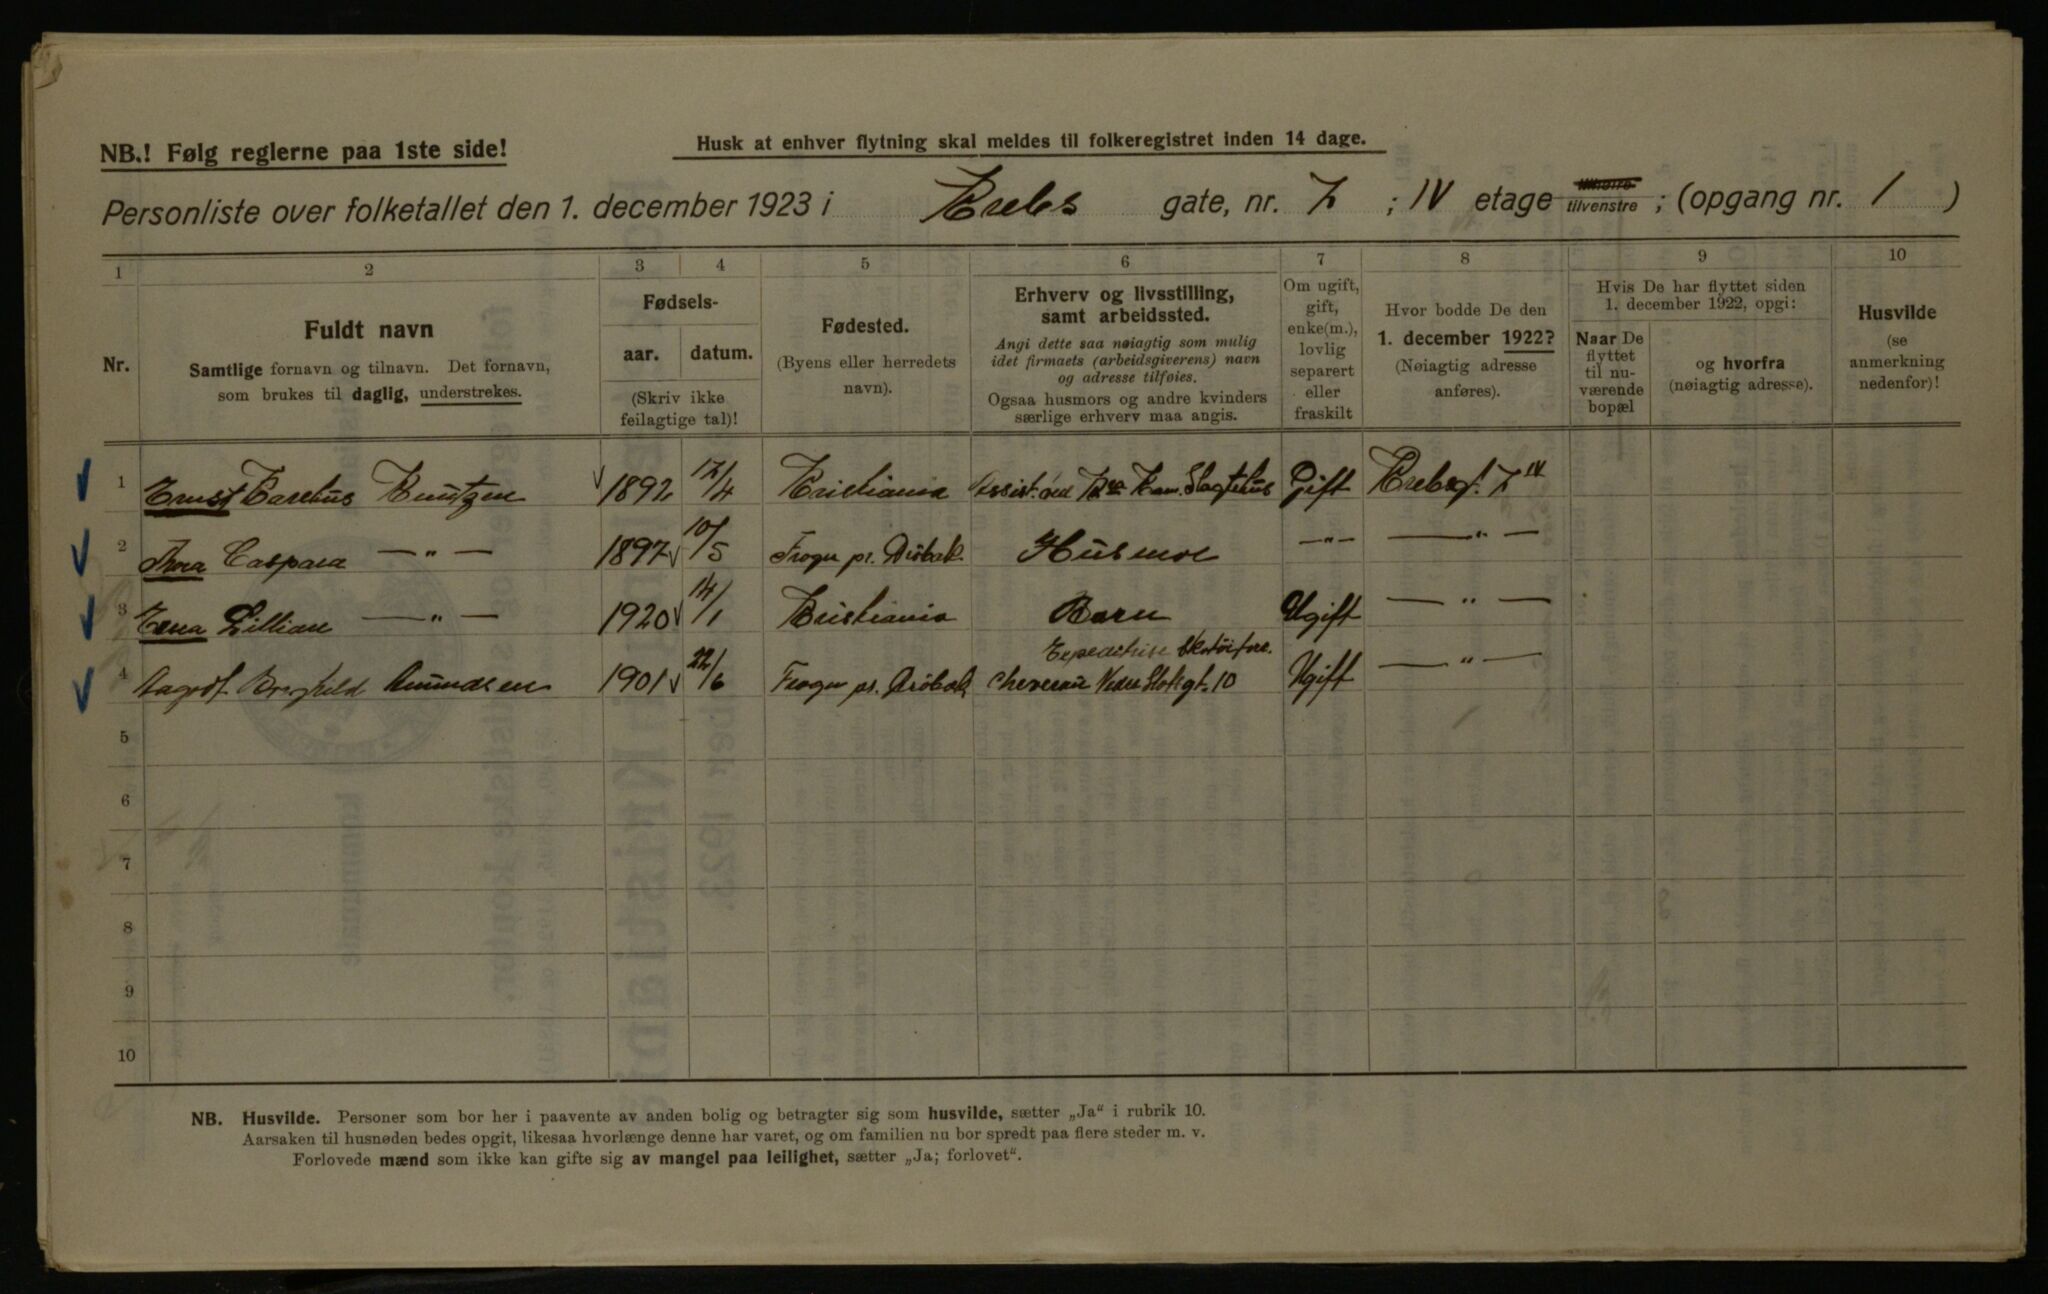 NB.! Følg reglerne paa 1ste side!
Husk at enhver flytning skal meldes til folkeregistret inden 14 dage.
Personliste over folketallet den 1. december 1923 i Krebs gate, nr. 7 ; IV etage tilhøire tilvenstre ; (opgang nr. 1 )
1 2 3 4 5 6 7 8 9 10
Nr.
Fuldt navn
Samtlige fornavn og tilnavn. Det fornavn,
som brukes til daglig, understrekes.
Fødsels-
aar. datum.
(Skriv ikke
feilagtige tal)!
Fødested.
(Byens eller herredets
navn).
Erhverv og livsstilling,
samt arbeidssted.
Angi dette saa nøiagtig som mulig
idet firmaets (arbeidsgiverens) navn
og adresse tilføies.
Ogsaa husmors og andre kvinders
særlige erhverv maa angis.
Om ugift,
gift,
enke(m.),
lovlig
separert
eller
fraskilt
Hvor bodde De den
1. december 1922?
(Nøiagtig adresse
anføres).
Hvis De har flyttet siden
1. december 1922, opgi:
Naar De
flyttet
til nu-
værende
bopæl
og hvorfra
(nøiagtig adresse).
Husvilde
(se
anmerkning
nedenfor)!
1 Ernst Knutzen 1892 12/4 Kristiania Assist. ved Kom. Slagtehus Gift Krebsgt. 7 IV
2 Thora Caspara — „ — 1897 10/5 Frogn pr. Drøbak Husmor — „ — — „ —
3 Erna Lillian — „ — 1920 14/1 Kristiania Barn Ugift — „ —
Expeditrise Skotøiforr.
4 Dagrot Borghild Amundsen 1901 22/6 Frogn pr. Drøbak Nedre Slotsgt. 10 Ugift — „ —
5
6
7
8
9
10
NB. Husvilde. Personer som bor her i paavente av anden bolig og betragter sig som husvilde, sætter „Ja“ i rubrik 10.
Aarsaken til husnøden bedes opgit, likesaa hvorlænge denne har varet, og om familien nu bor spredt paa flere steder m. v.
Forlovede mænd som ikke kan gifte sig av mangel paa leilighet, sætter „Ja; forlovet“.